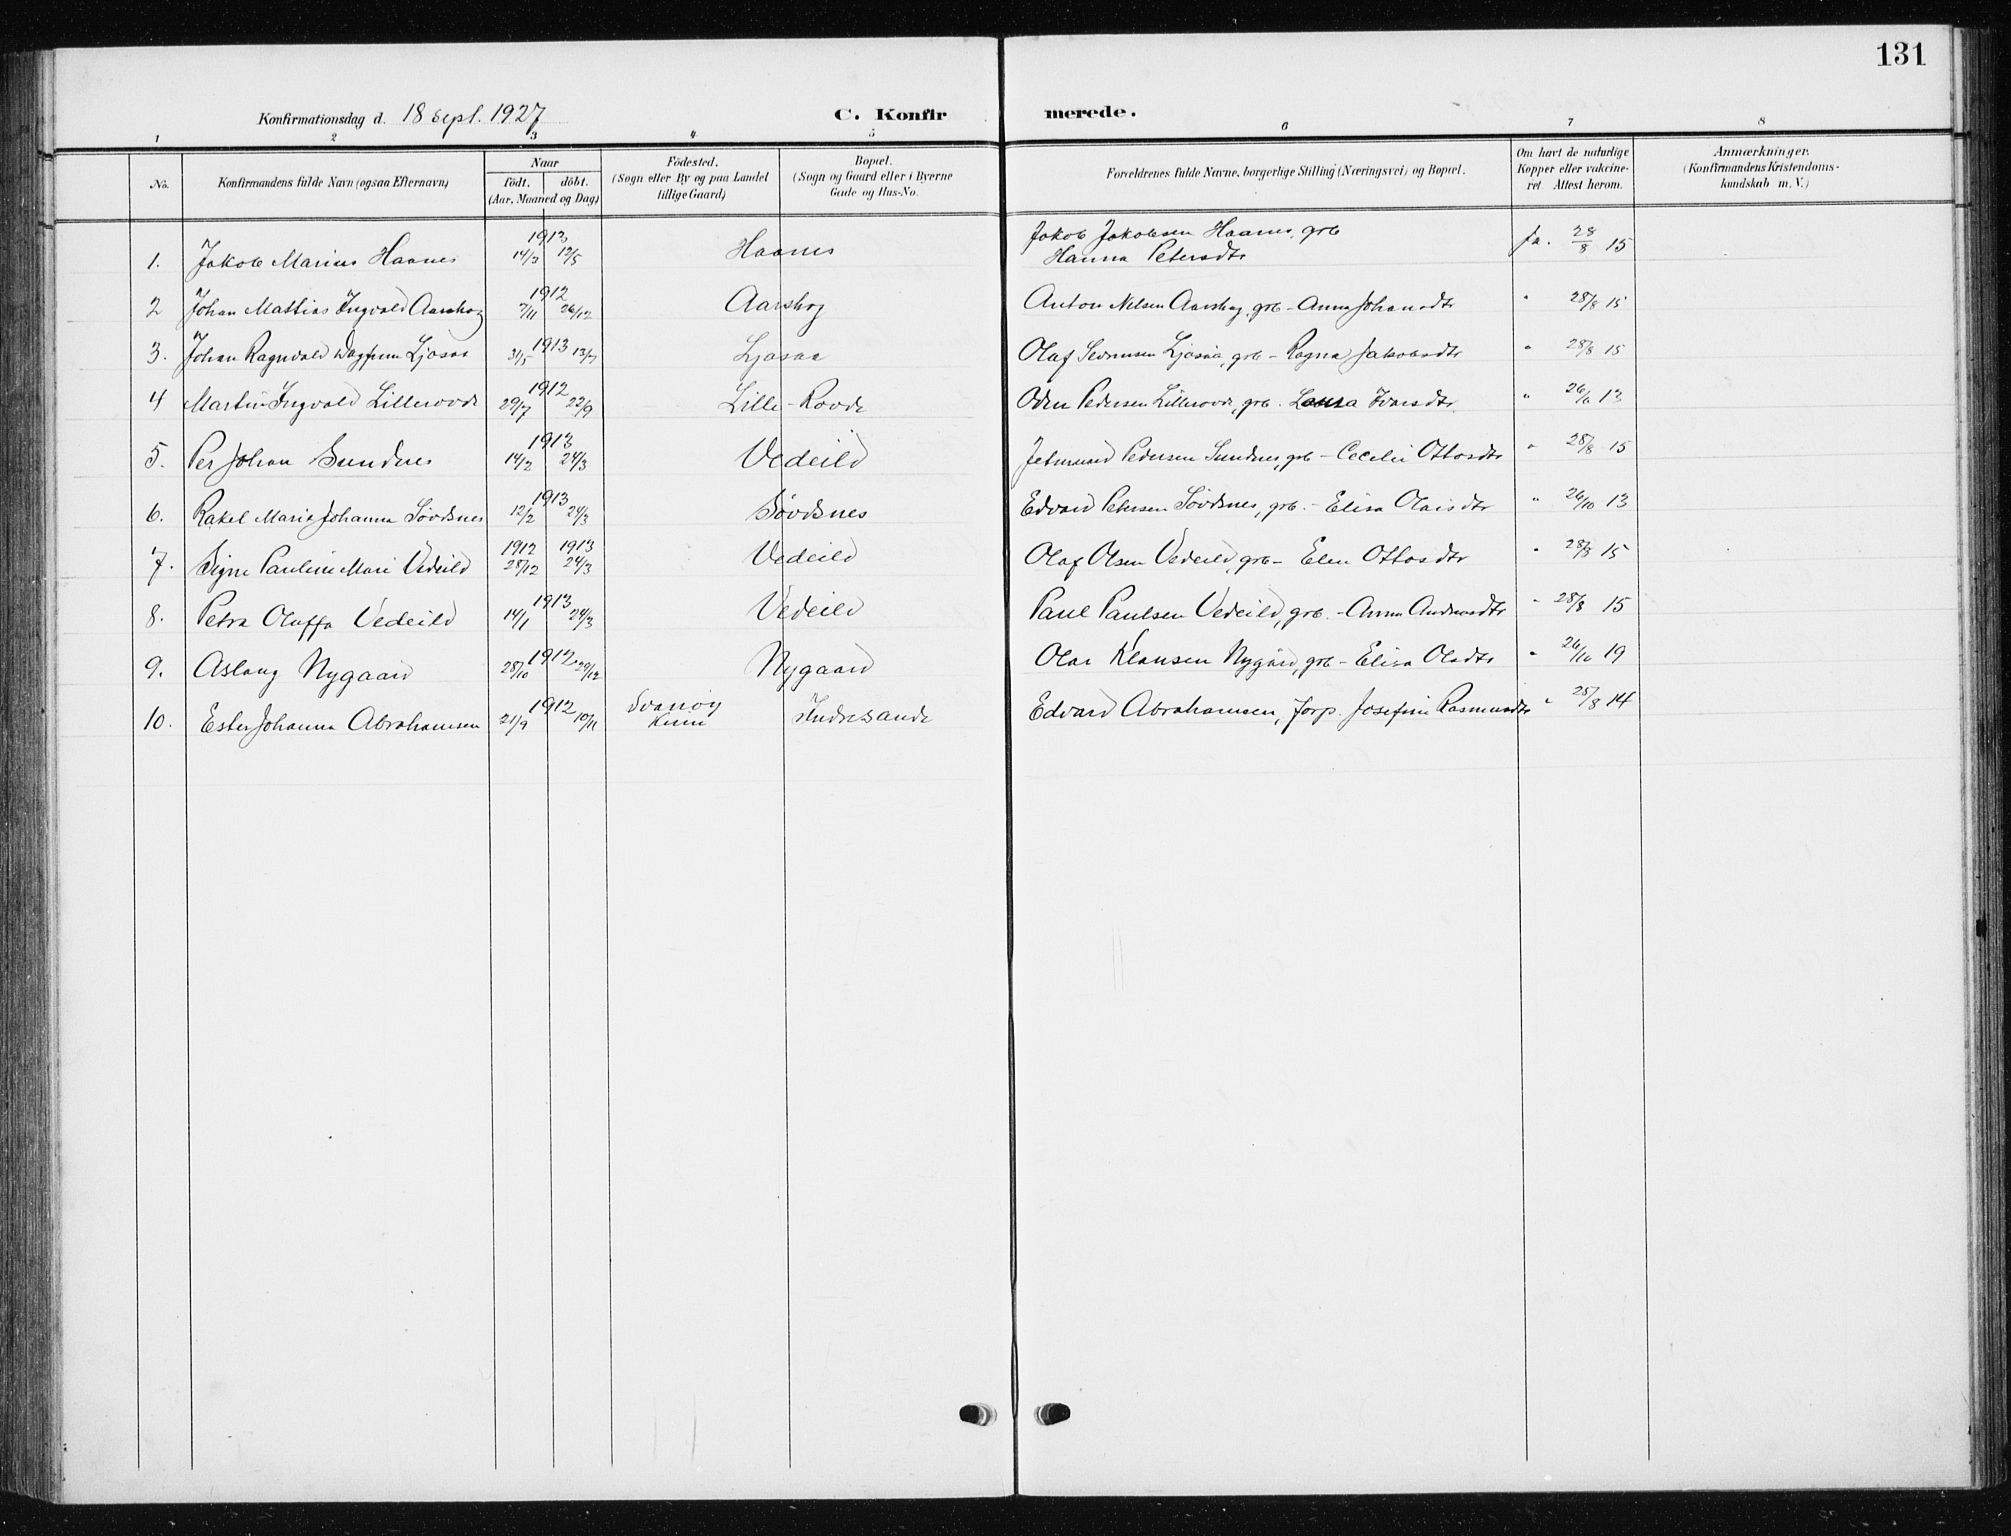 131
Konfirmationsdag d. 18 Sept. 1927 C. Konfirmerede.
1 2 3 4 5 6 7 8
No. Konfirmandens fulde Navn (ogsaa Efternavn) Naar födt. döbt. (Aar, Maaned og Dag) Födested. (Sogn eller By og paa Landet tillige Gaard) Bopæl. (Sogn og Gaard eller i Byerne Gade og Hus-No. Forældrenes fulde Navne, borgerlige Stilling (Næringsvei) og Bopæl. Om havt de naturlige Kopper eller vakcineret Attest herom. Anmærkninger. (Konfirmandens Kristendomskundskab m. V.)
1. Jakob Marius Haanes 1913 14/3 12/5 Haanes Jakob Jakobsen Haanes, grb Hanna Petersdtr ja. 28/8 15
2 Johan Mattias Ingvald Aarskog 1912 7/11 26/12 Aarskog Anton Nilsen Aarskog, grb - Anna Johansdtr " 28/8 15
3. Johan Ragnvald Dagfinn Ljosaa 1913 31/5 13/7 Ljosaa Olaf Severinsen Ljosaa, grb - Ragna Jakobsdtr " 28/8 15
4 Martin Ingvald Lillerovde 1912 29/7 22/9 Lille-Rovde Oden Pedersen Lillerovde, grb. Laura Ivarsdtr. " 26/6 13
5. Per Johan Sundnes 1913 14/2 24/3 Vedeild Jetmund Pedersen Sundnes, grb - Cecilie Ottosdtr " 28/8 15
6. Rakel Marie Johanna Sövdsnes 1913 12/2 24/3 Sövdsnes Edvard Petersen Sövdsnes, grb. - Elisa Olaisdtr " 26/10 13
7. Signe Pauline Marie Vedeild 1912 28/12 1913 24/3 Vedeild Olaf Olsen Vedeild, grb - Elen Ottosdtr " 28/8 15
8. Petra Oluffa Vedeild 1913 14/1 24/3 Vedeild Paul Paulsen Vedeild, grb. - Anna Andreasdtr " 28/8 15
9. Aslaug Nygaard 1912 28/10 29/12 Nygaard Olai Klausen Nygård, grb - Elisa Olsdtr " 26/10 19
10. Ester Johanna Abrahamsen 1912 21/9 10/11 Svanöy Kinn Indresande Edvard Abrahamsen, forp. Josefine Rasmusdtr " 25/8 14